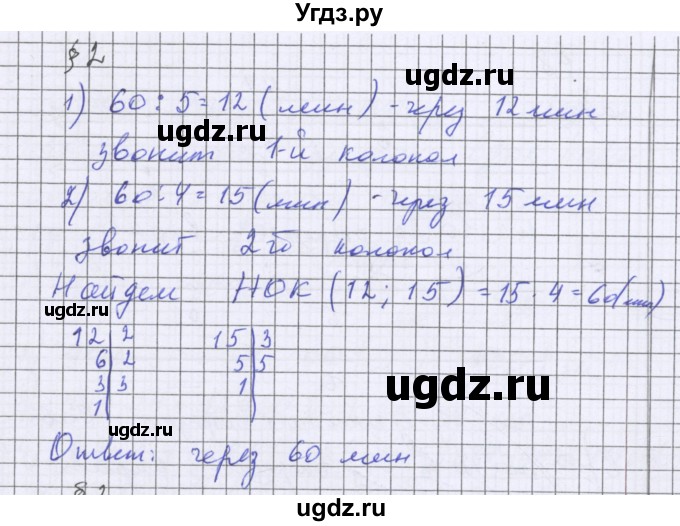 Угдз.ру
§ 2
1) 60 : 5 = 12 (мин) - через 12 мин
звонит 1-й колокол
2) 60 : 4 = 15 (мин) - через 15 мин
звонит 2-й колокол
Найдем НОК (12; 15) = 15 · 4 = 60 (мин)
12 | 2   15 | 3
6 | 2   5 | 5
3 | 3   1 |
1 |
Ответ: через 60 мин
ugdz.ru
ugdz.ru
ugdz.ru
ugdz.ru
ugdz.ru
ugdz.ru
ugdz.ru